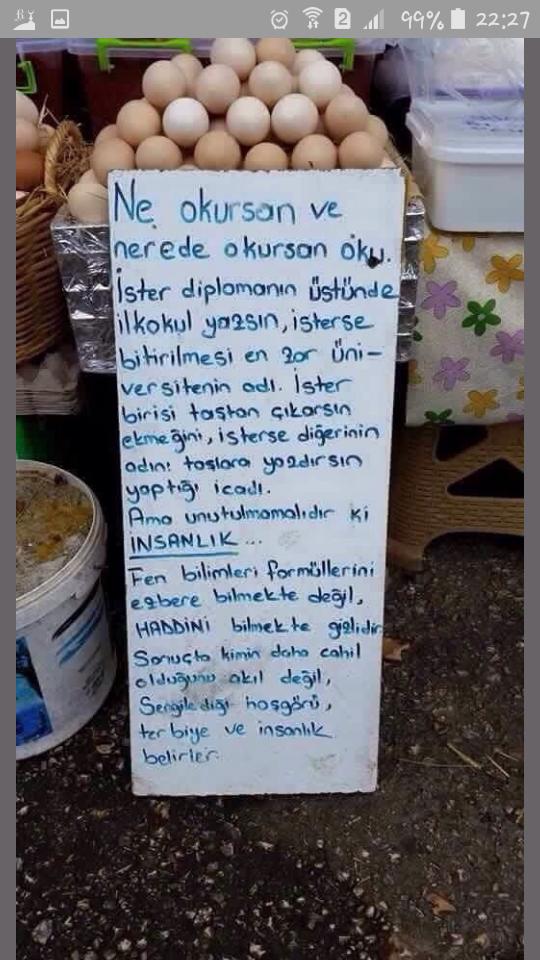 2 99% 22:27
Ne okursan ve
nerede okursan oku.
İster diplomanın üstünde
ilkokul yazsın, isterse
bitirilmesi en zor üni-
versitenin adı. İster
birisi taştan çıkarsın
ekmeğini, isterse diğerinin
adını taşlara yazdırsın
yaptığı icadı.
Ama unutulmamalıdır ki
İNSANLIK ...
Fen bilimleri formüllerini
ezbere bilmekte değil,
HADDİNİ bilmekte gizlidir
Sonuçta kimin daha cahil
olduğunu akıl değil,
Sergilediği hoşgörü,
terbiye ve insanlık
belirler.